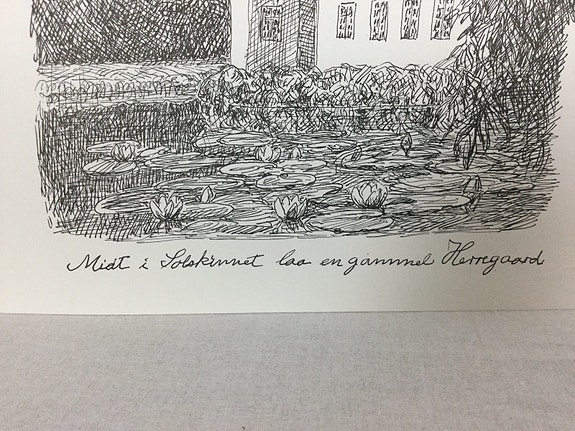 Midt i Solskinnet laa en gammel Herregaard